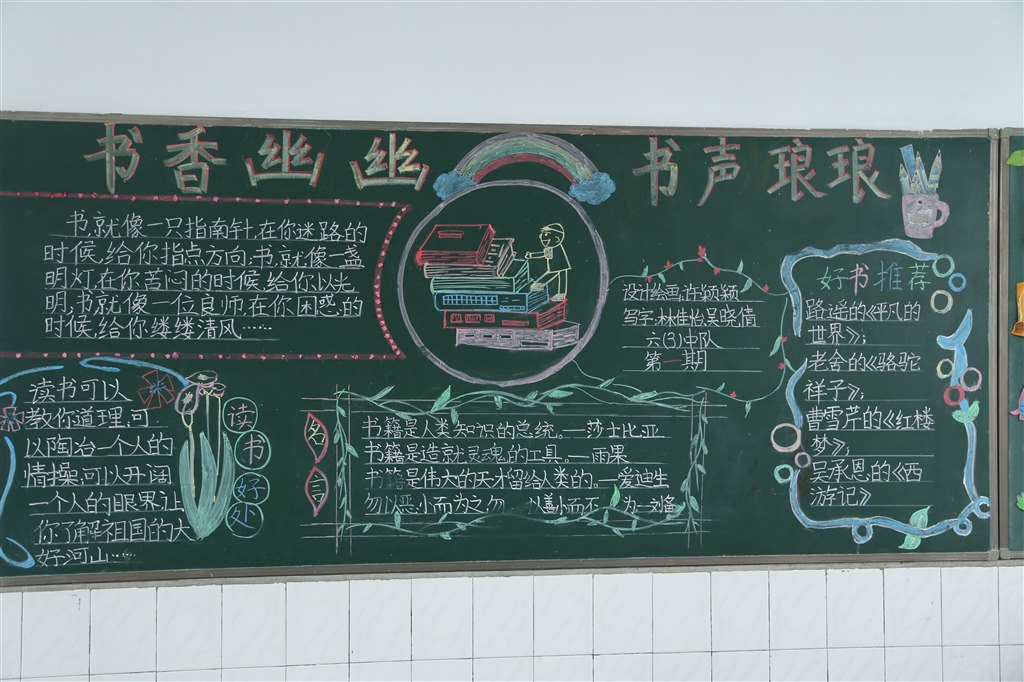 书香幽幽
书声琅琅
书就像一只指南针,在你迷路的
时候,给你指点方向,书就像一盏
明灯,在你苦闷的时候,给你以光
明,书就像一位良师,在你困惑的
时候,给你缕缕清风……
设计绘画:许颖颖
写字:林佳怡吴晓倩
六(3)中队
第一期
好书推荐
路遥的《平凡的
世界》;
老舍的《骆驼
祥子》;
曹雪芹的《红楼
梦》;
吴承恩的《西
游记》
读书可以
教你道理,可
以陶冶一个人的
情操,可以开阔
一个人的眼界让
你了解祖国的大
好河山……
读书好处
名言
书籍是人类知识的总统。—莎士比亚
书籍是造就灵魂的工具。—雨果
书籍是伟大的天才留给人类的。—爱迪生
勿以恶小而为之,勿以善小而不为—刘备